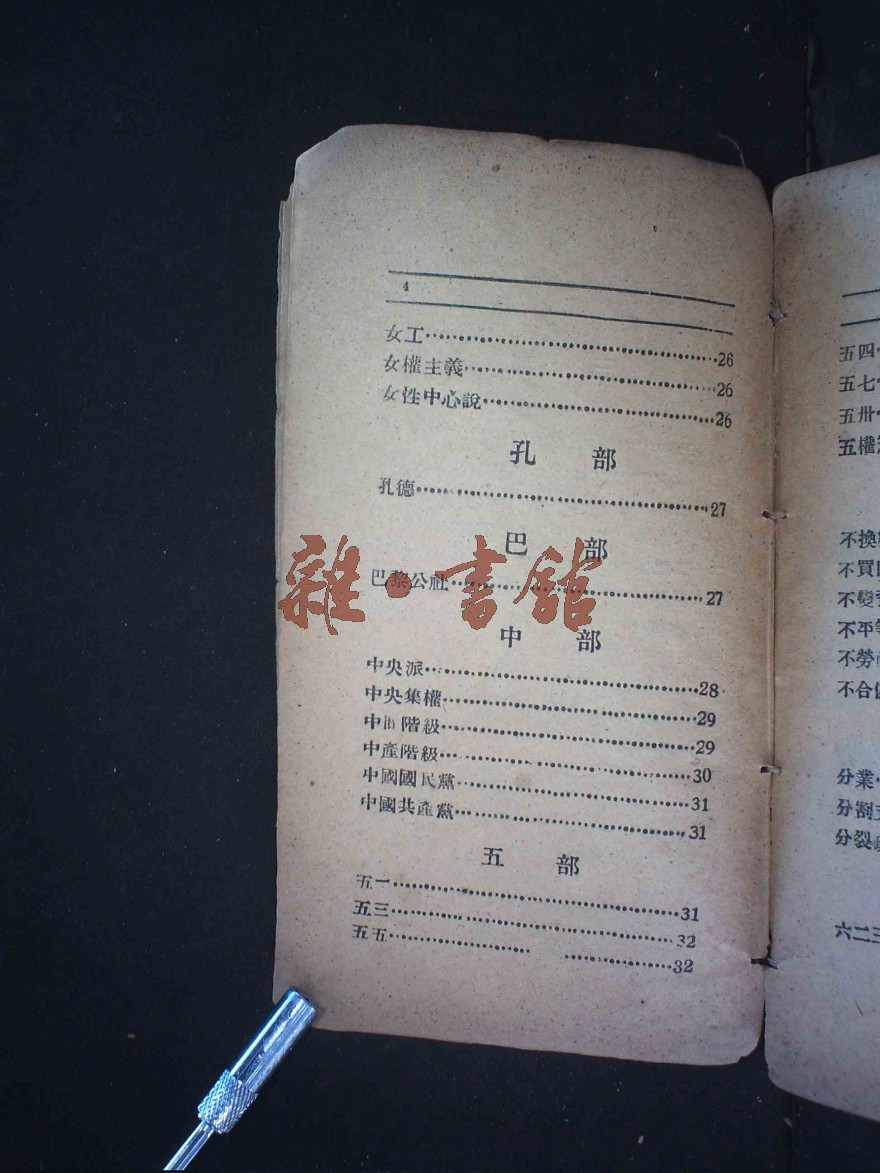 4
女工……26
女權主義……26
女性中心說……26
孔 部
孔德……27
巴 部
巴黎公社……27
中 部
中央派……28
中央集權……29
中 階級……29
中產階級……30
中國國民黨……31
中國共產黨……31
五 部
五一……31
五三……32
五五……32
雜·書館
五四
五七
五卅
五權
不換
不買
不變
不平等
不勞
不合
分業
分割
分裂
六二三